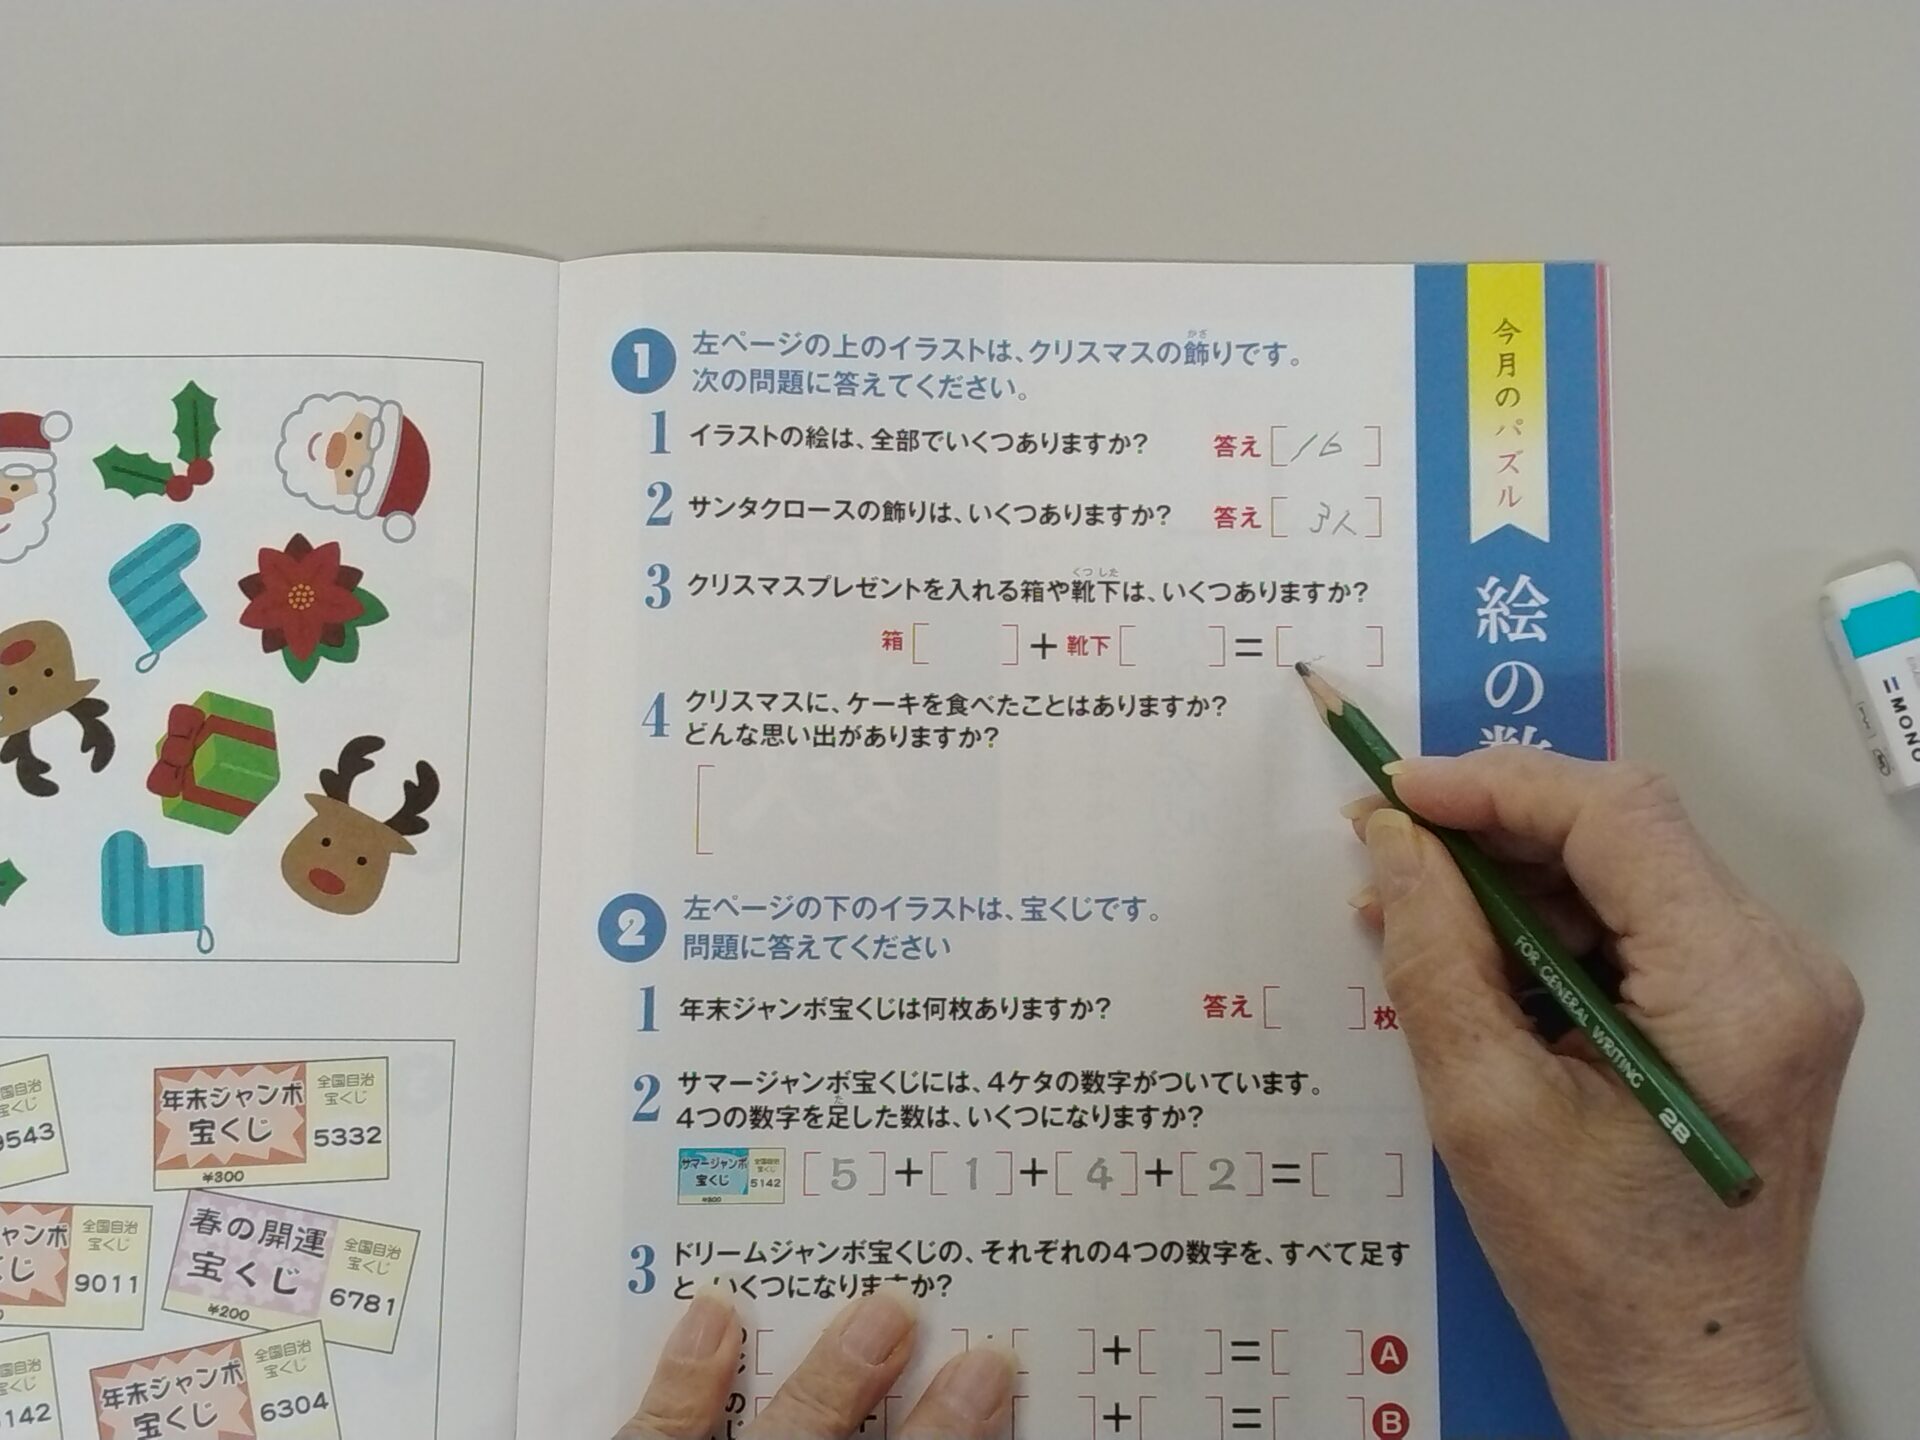 今月のパズル
絵の数
1 左ページの上のイラストは、クリスマスの飾りです。
かざ
次の問題に答えてください。
1 イラストの絵は、全部でいくつありますか? 答え[16]
2 サンタクロースの飾りは、いくつありますか? 答え[3人]
くつした
3 クリスマスプレゼントを入れる箱や靴下は、いくつありますか?
箱[ ]+靴下[ ]=[ ]
4 クリスマスに、ケーキを食べたことはありますか?
どんな思い出がありますか?
2 左ページの下のイラストは、宝くじです。
問題に答えてください
1 年末ジャンボ宝くじは何枚ありますか? 答え[ ]枚
2 サマージャンボ宝くじには、4ケタの数字がついています。
た
4つの数字を足した数は、いくつになりますか?
サマージャンボ
宝くじ
全国自治
宝くじ
5142
[5]+[1]+[4]+[2]=[ ]
3 ドリームジャンボ宝くじの、それぞれの4つの数字を、すべて足す
と、いくつになりますか?
+[ ]=[ ]A
+[ ]=[ ]B
国自治
宝くじ
9543
年末ジャンボ
宝くじ
¥300
全国自治
宝くじ
5332
ャンボ
くじ
全国自治
宝くじ
9011
春の開運
宝くじ
¥200
全国自治
宝くじ
6781
国自治
宝くじ
142
年末ジャンボ
宝くじ
全国自治
宝くじ
6304
FOR GENERAL WRITING 2B
MONO